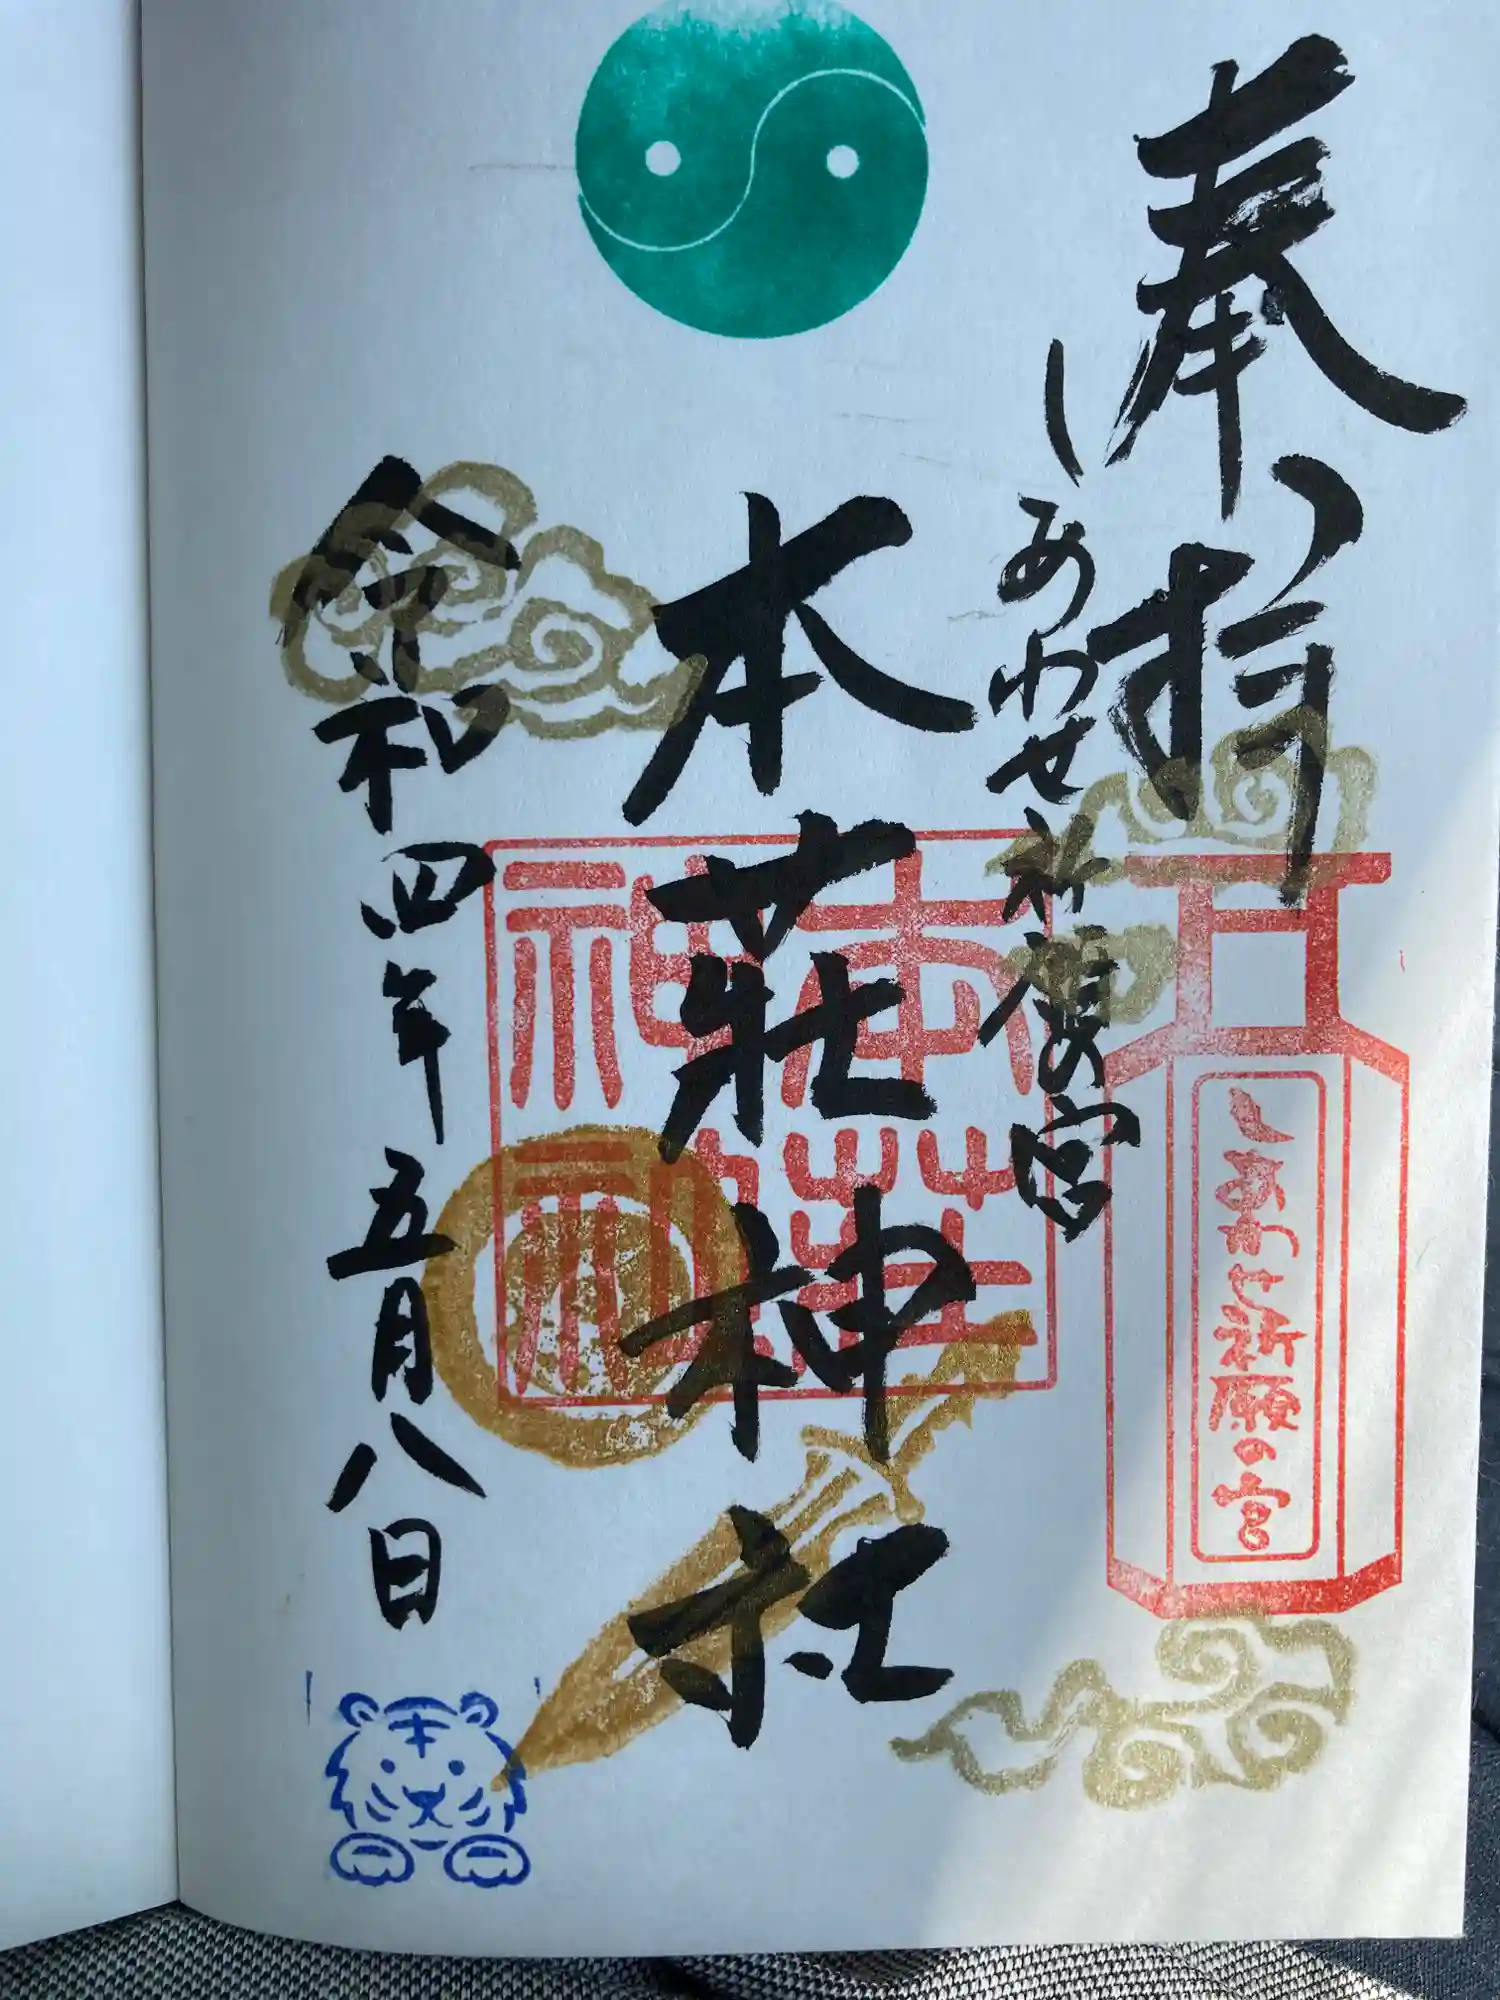 奉拝
しあわせ祈願の宮
しあわせ祈願の宮
本荘神社
本荘神社
令和四年五月八日